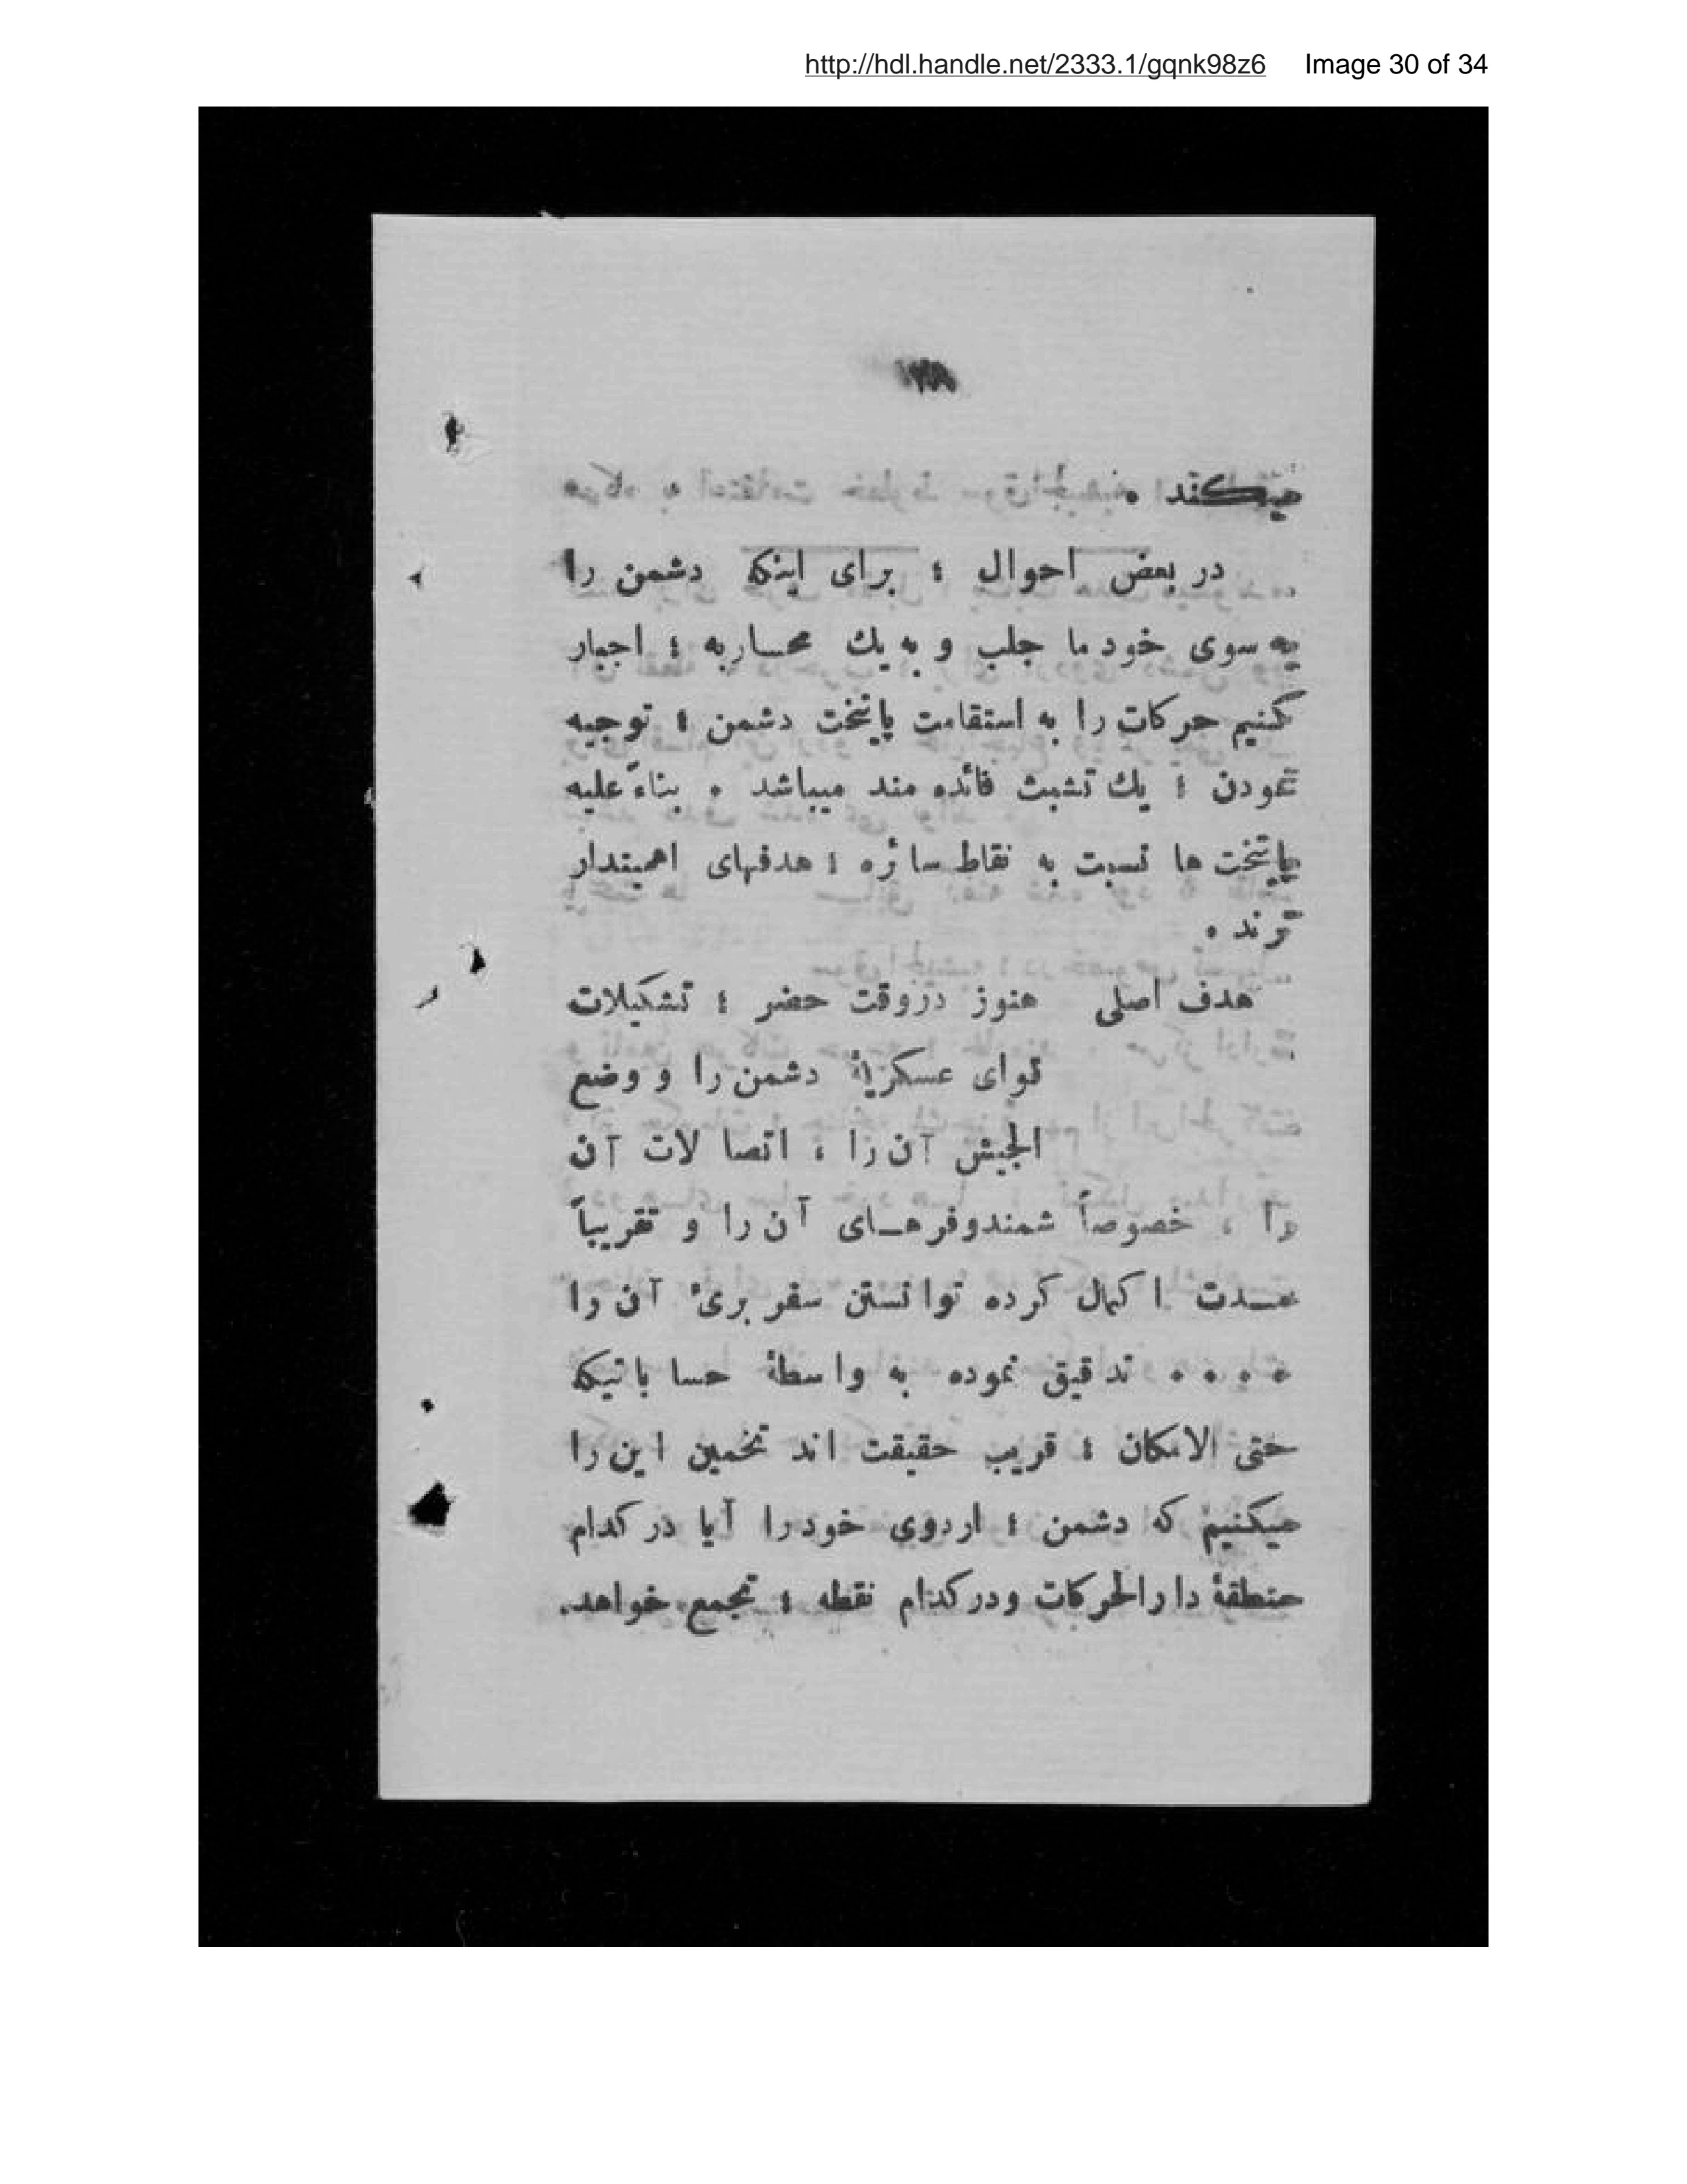 http://hdl.handle.net/2333.1/gqnk98z6 Image 30 of 34
میکند ۰
در بعض احوال ؛ برای اینکه دشمن را
به سوی خود ما جلب و به یك محساربه ؛ اجبار
کنیم حرکات را به استقامت پایتخت دشمن ؛ توجیه
نمودن ؛ یك تشبث فائده مند میباشد ۰ بناءً علیه
پایتخت ها نسبت به نقاط سائره ؛ هدفهای اهمیتدار
ترند ۰
هدف اصلی هنوز در وقت حضر ؛ تشکیلات
قوای عسکریۀ دشمن را و وضع
الجیش آن را ، اتصالات آن
را ، خصوصاً شمندوفرهـای آن را و تقریباً
مـدت اکمال کرده توانستن سفر بریٔ آن را
۰ ۰ ۰ ۰ تدقیق نموده به واسطۀ حساباتیکه
حتی الامکان ؛ قریب حقیقت اند تخمین این را
میکنیم که دشمن ؛ اردوی خود را آیا در کدام
منطقۀ دارالحرکات و در کدام نقطه ؛ تجمع خواهد.